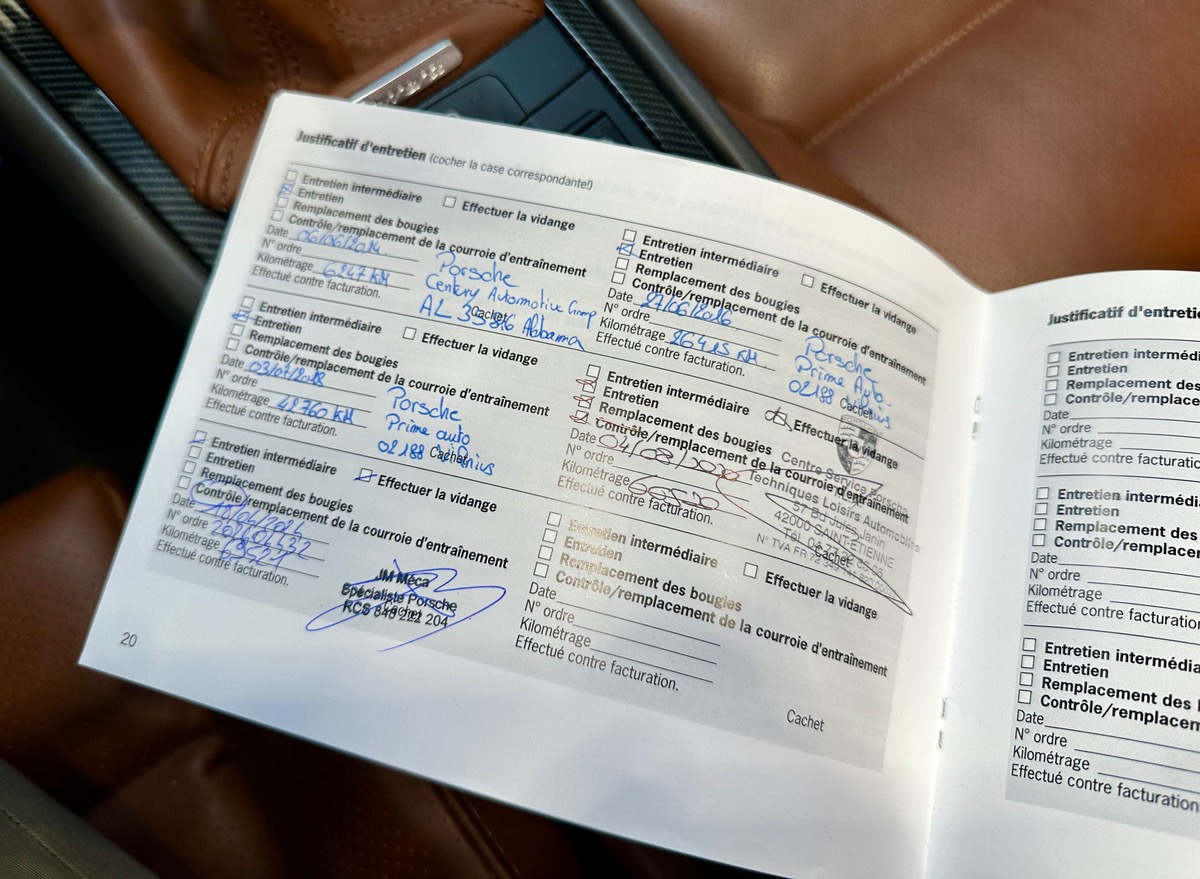 Justificatif d'entretien (cocher la case correspondante!)
Entretien intermédiaire
Effectuer la vidange
Entretien
Remplacement des bougies
Contrôle/remplacement de la courroie d'entraînement
Date 06/06/2014
N° ordre
Kilométrage 6247 KM
Effectué contre facturation.
Porsche
Automotive Group
AL
Cachet
Entretien intermédiaire
Effectuer la vidange
Entretien
Remplacement des bougies
Contrôle/remplacement de la courroie d'entraînement
Date 27/06/2016
N° ordre
Kilométrage KM
Effectué contre facturation.
Porsche
Prime Auto
02188 Vilnius
Cachet
Entretien intermédiaire
Effectuer la vidange
Entretien
Remplacement des bougies
Contrôle/remplacement de la courroie d'entraînement
Date 03/07/2018
N° ordre
Kilométrage 42760 KM
Effectué contre facturation.
Porsche
Prime auto
02188 Vilnius
Cachet
Entretien intermédiaire
Effectuer la vidange
Entretien
Remplacement des bougies
Contrôle/remplacement de la courroie d'entraînement
Date 04/08/2020
N° ordre
Kilométrage
Effectué contre facturation.
Centre Service Porsche
Techniques Loisirs Automobiles
57 Bd Jules Janin
42000 SAINT-ETIENNE
Tél.
Cachet
N° TVA FR
Entretien intermédiaire
Effectuer la vidange
Entretien
Remplacement des bougies
Contrôle/remplacement de la courroie d'entraînement
Date
N° ordre
Kilométrage
Effectué contre facturation.
JM Méca
Spécialiste Porsche
Cachet
RCS 848 222 204
Entretien intermédiaire
Effectuer la vidange
Entretien
Remplacement des bougies
Contrôle/remplacement de la courroie d'entraînement
Date
N° ordre
Kilométrage
Effectué contre facturation.
Cachet
20
Justificatif d'entretie
Entretien intermédi
Entretien
Remplacement des
Contrôle/remplacem
Date
N° ordre
Kilométrage
Effectué contre facturatio
Entretien intermédi
Entretien
Remplacement des
Contrôle/remplacem
Date
N° ordre
Kilométrage
Effectué contre facturation
Entretien intermédia
Entretien
Remplacement des
Contrôle/remplacem
Date
N° ordre
Kilométrage
Effectué contre facturation